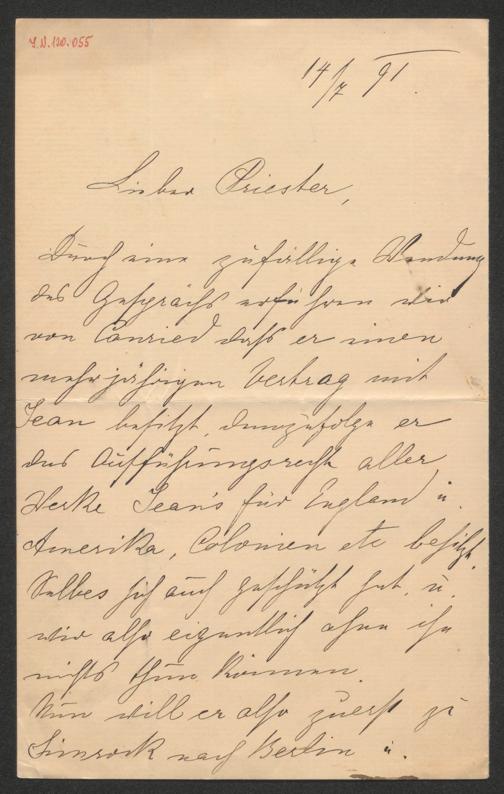 I.N. 120.055
14/7 91.
Lieber Priester,
Durch eine zufällige Wendung
des Gesprächs erfuhren wir
von Conried daß er einen
mehrjährigen Vertrag mit
Jean besitzt, demzufolge er
das Aufführungsrecht aller
Werke Jean's für England u.
Amerika, Colonien etc besitzt,
Selbes sich auch geschützt hat, u.
wir also eigentlich ohne ihn
nichts thun können.
Nun will er also zuerst zu
Simrock nach Berlin u.